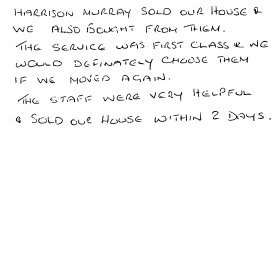 HARRISON MURRAY SOLD OUR HOUSE &
WE ALSO BOUGHT FROM THEM.
THE SERVICE WAS FIRST CLASS & WE
WOULD DEFINATELY CHOOSE THEM
IF WE MOVED AGAIN.
THE STAFF WERE VERY HELPFUL
& SOLD OUR HOUSE WITHIN 2 DAYS.